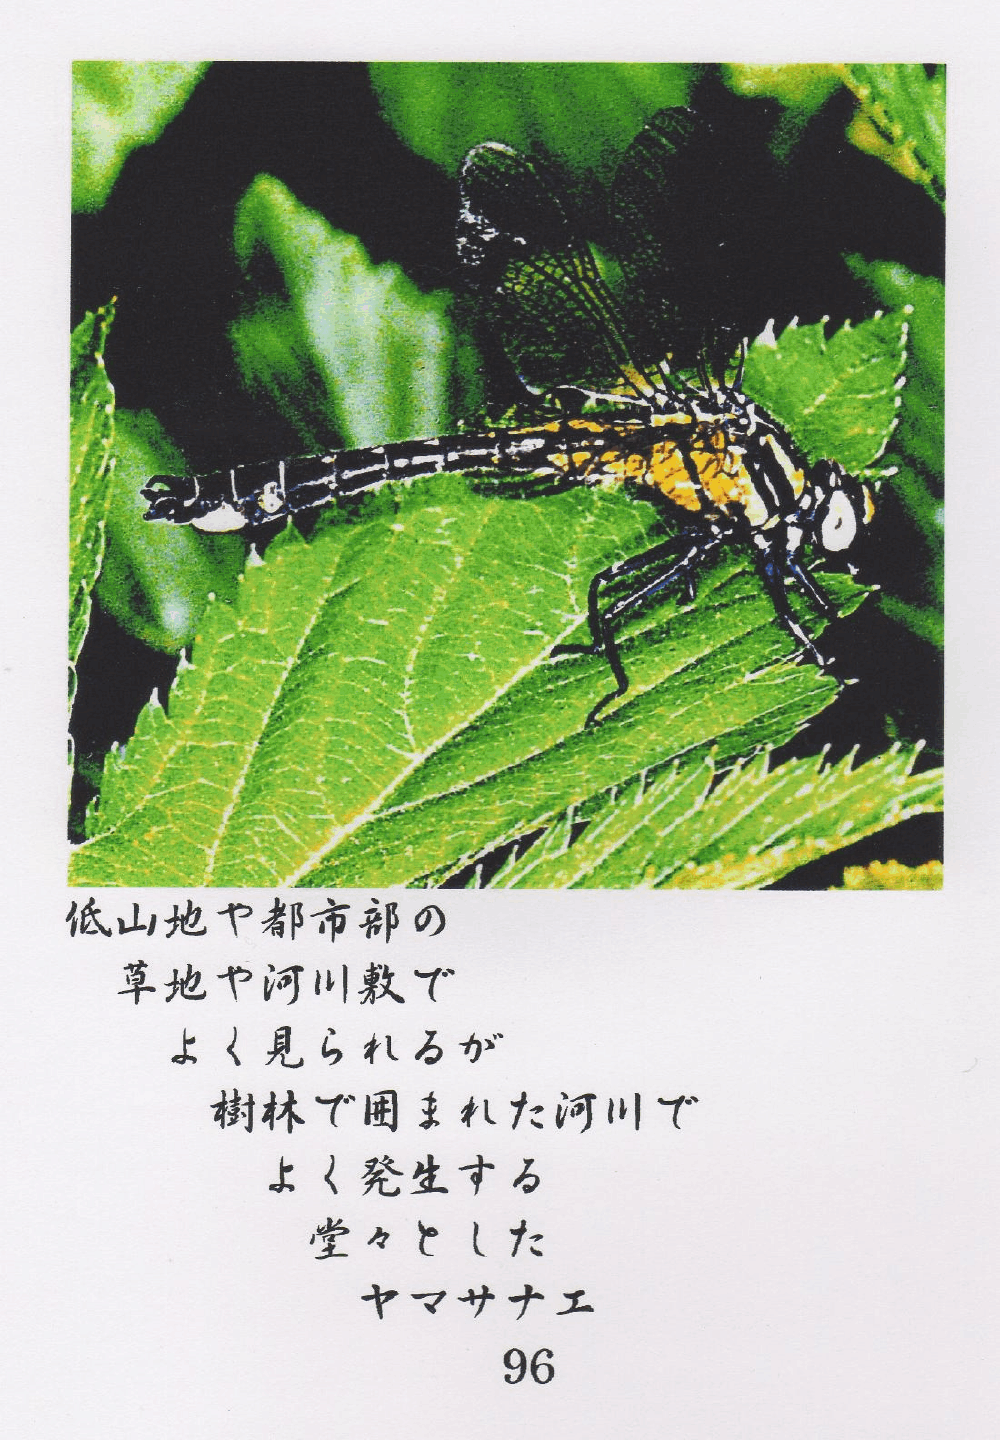 低山地や都市部の
草地や河川敷で
よく見られるが
樹林で囲まれた河川で
よく発生する
堂々とした
ヤマサナエ
96